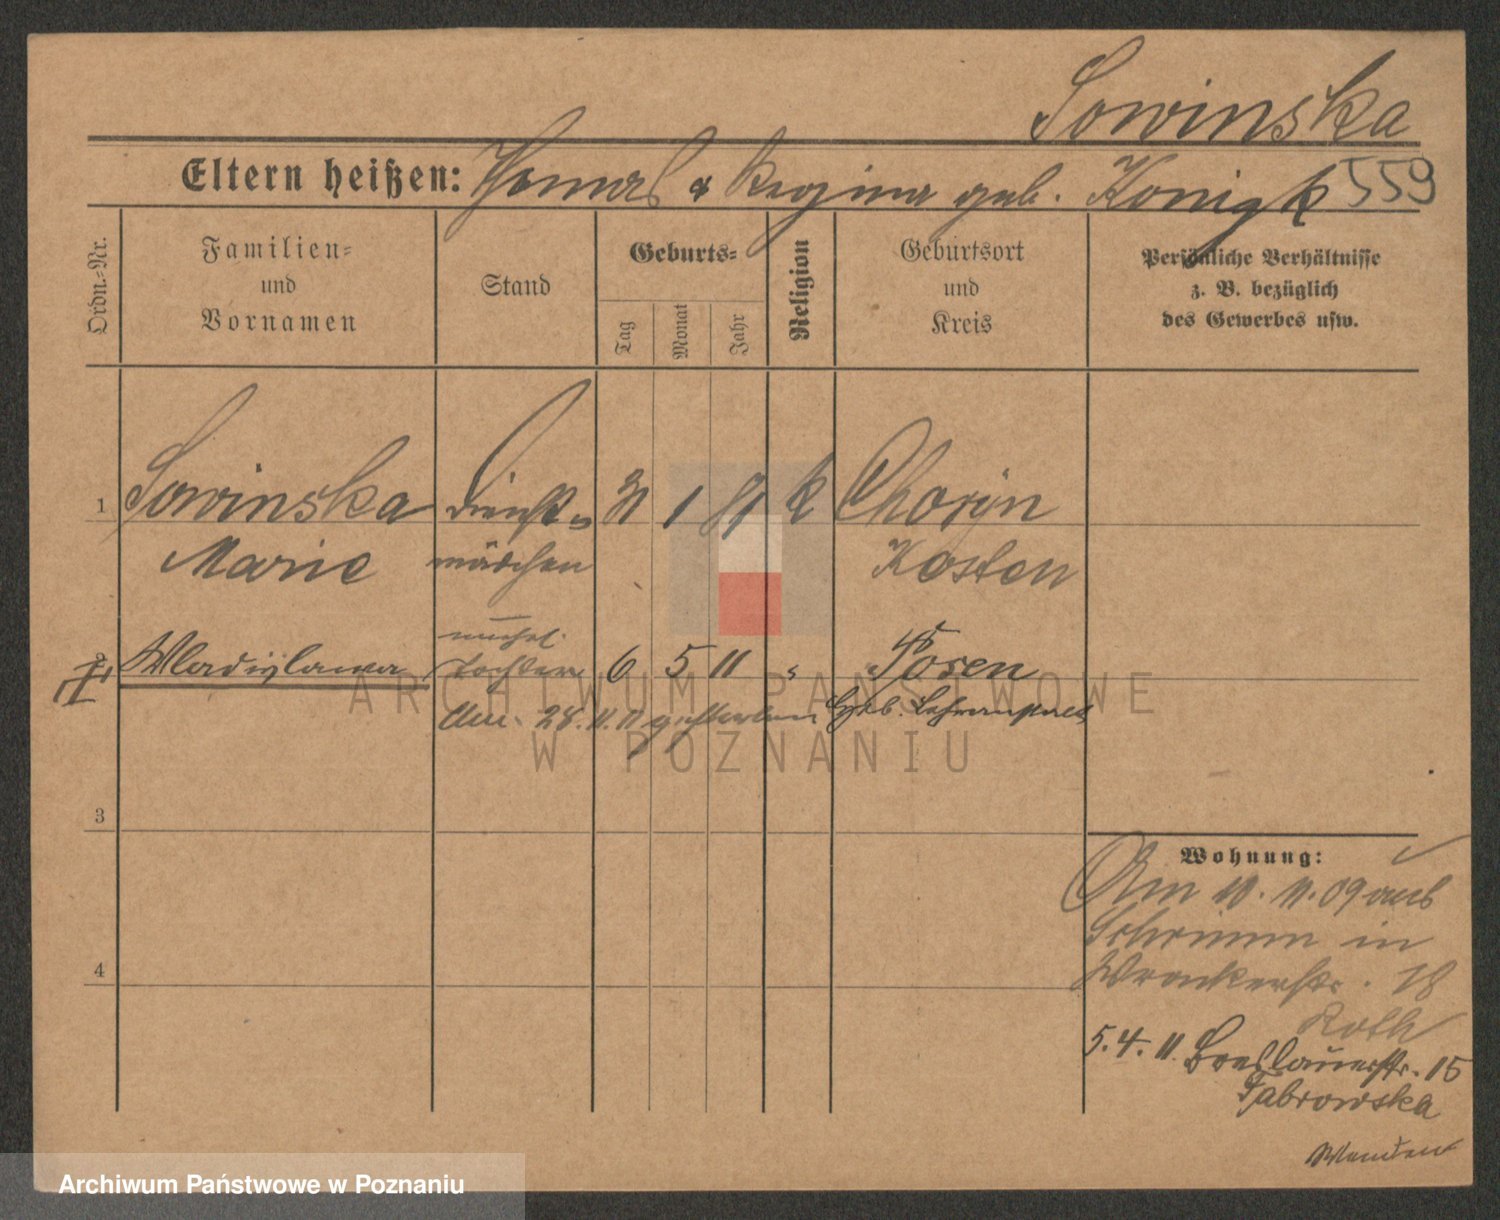 Sowinska
Eltern heißen: Thomas & Regina geb. Konigk 559
Ordn.=Nr.
Familien=
und
Vornamen
Stand
Geburts=
Tag
Monat
Jahr
Religion
Geburtsort
und
Kreis
Persönliche Verhältnisse
z. B. bezüglich
des Gewerbes usw.
1 Sowinska Dienst= 31 1 91 k Choryn
Marie mädchen Kosten
unehel.
2 Wladislawa Tochter 6 5 11 " Posen
Am 28.11.11 gestorben Heb. Lehranstalt
3
4
Wohnung:
Am 10.11.09 aus
Schrimm in
Wronkerstr. 18
Roth
5.4.11. Breslauerstr. 15
Dabrowska
Wenden
ARCHIWUM PAŃSTWOWE
W POZNANIU
Archiwum Państwowe w Poznaniu